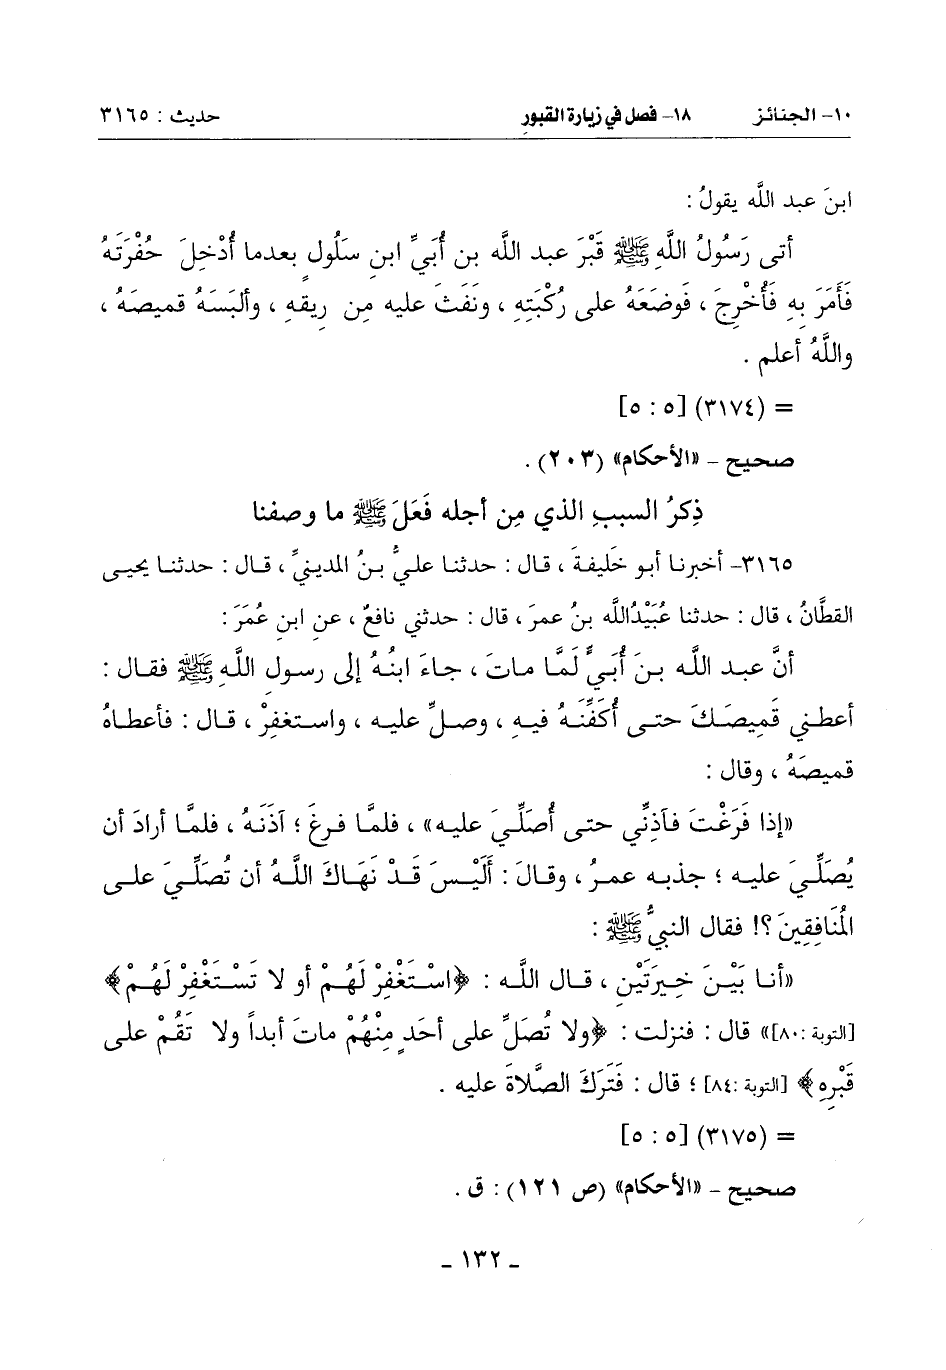 ١٠- الجنائز ١٨- فصل في زيارة القبور حديث : ٣١٦٥
ابنَ عبد اللَّه يقولُ :
أتى رَسُولُ اللَّهِ ﷺ قَبْرَ عبد اللَّه بن أُبَيِّ ابنِ سَلُولٍ بعدما أُدْخِلَ حُفْرَتَهُ
فَأَمَرَ بِهِ فَأُخْرِجَ ، فَوضَعَهُ على رُكْبَتِهِ ، ونَفَثَ عليه مِن رِيقِهِ ، وألبَسَهُ قميصَهُ ،
واللَّهُ أعلم .
= (٣١٧٤) [٥ : ٥]
صحيح – «الأحكام» (٢٠٣) .
ذِكرُ السببِ الذي مِن أجله فَعَلَ ﷺ ما وصفنا
٣١٦٥– أخبرنا أبو خَليفةَ ، قال : حدثنا عليُّ بنُ المدينيِّ ، قال : حدثنا يحيى
القطَّانُ ، قال : حدثنا عُبَيْدُاللَّه بنُ عمرَ ، قال : حدثني نافعٌ ، عنِ ابنِ عُمَرَ :
أنَّ عبد اللَّه بنَ أُبَيٍّ لَمَّا ماتَ ، جاءَ ابنُهُ إلى رسول اللَّهِ ﷺ فقال :
أعطني قَمِيصَكَ حتى أُكَفِّنَهُ فيهِ ، وصلِّ عليه ، واستغفِرْ ، قال : فأعطاهُ
قميصَهُ ، وقال :
«إذا فَرَغْتَ فآذِنِّي حتى أُصَلِّيَ عليه» ، فلمَّا فرغَ ؛ آذَنَهُ ، فلمَّا أرادَ أن
يُصَلِّيَ عليه ؛ جذبه عمرُ ، وقالَ : أَلَيْسَ قَدْ نَهَاكَ اللَّهُ أن تُصَلِّيَ على
المُنَافِقِينَ ؟! فقال النبيُّ ﷺ :
«أنا بَيْنَ خِيرَتَيْنِ ، قال اللَّه : ﴿اسْتَغْفِرْ لَهُمْ أو لا تَسْتَغْفِرْ لَهُمْ﴾
[التوبة :٨٠]» قال : فنزلت : ﴿ولا تُصَلِّ على أحَدٍ مِنْهُمْ ماتَ أبداً ولا تَقُمْ على
قَبْرِهِ﴾ [التوبة :٨٤] ؛ قال : فَتَرَكَ الصَّلاةَ عليه .
= (٣١٧٥) [٥ : ٥]
صحيح – «الأحكام» (ص ١٢١) : ق .
ـ ١٣٢ ـ